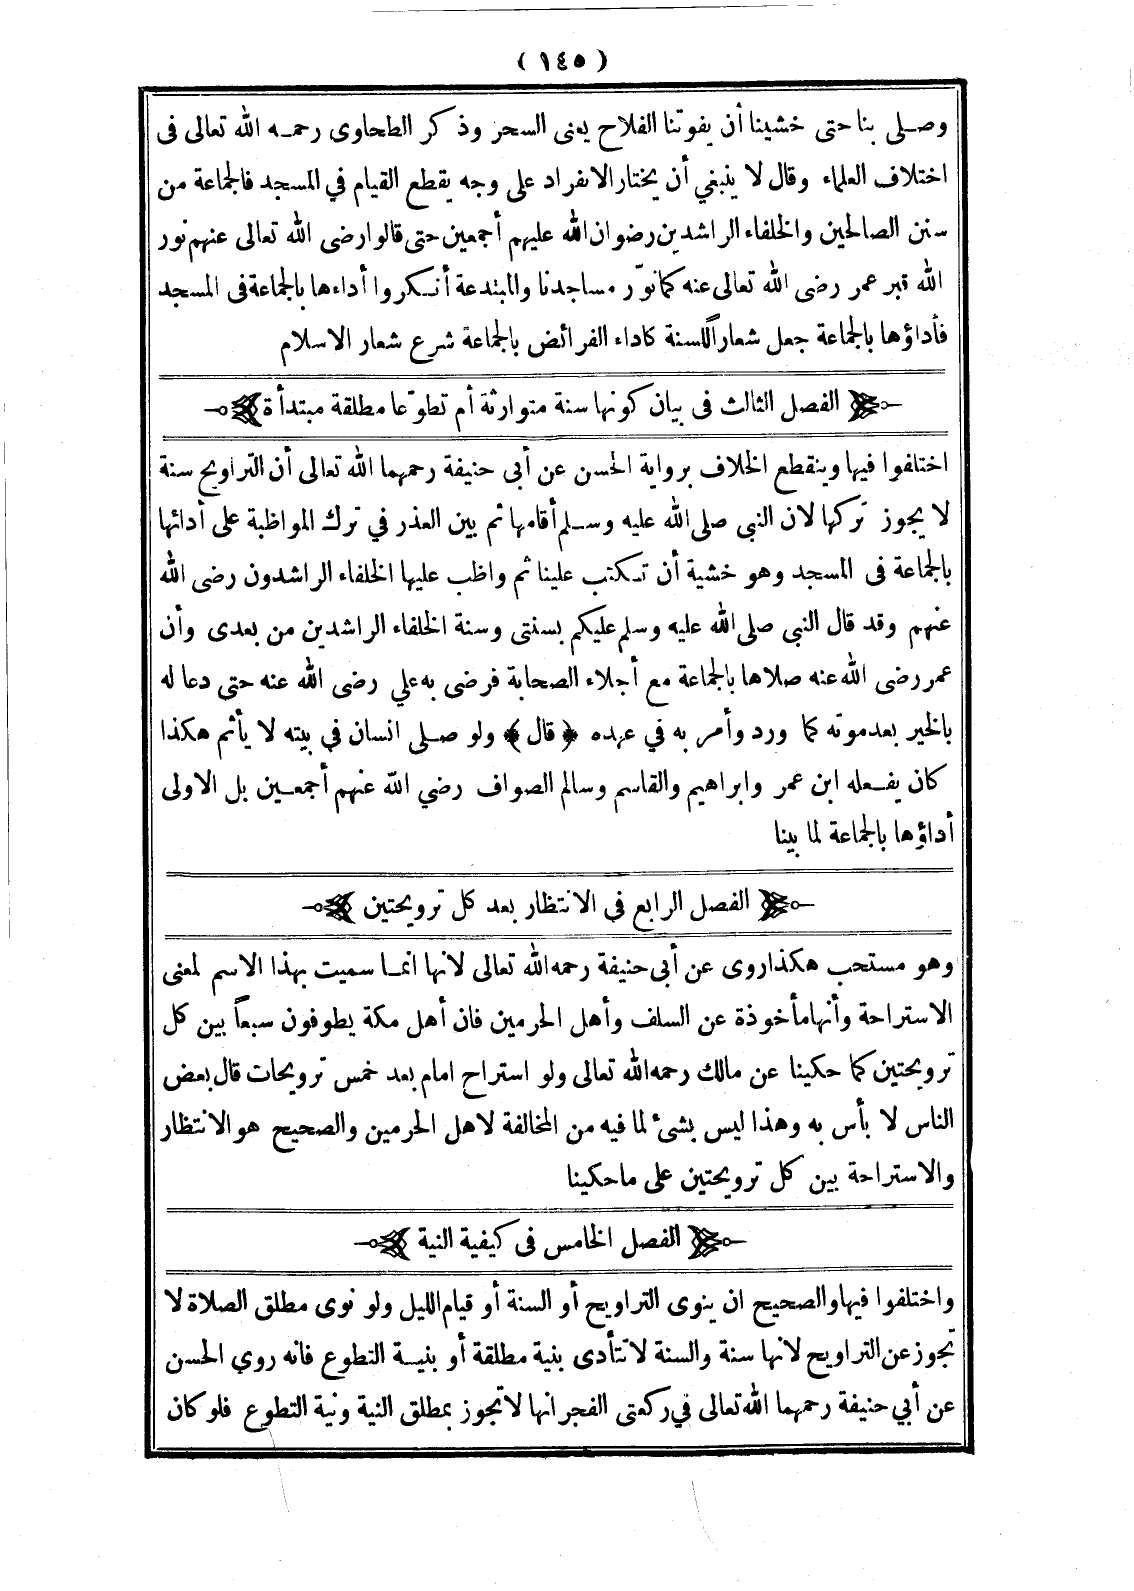 ( ١٤٥ )
وصلى بنا حتى خشينا أن يفوتنا الفلاح يعنى السحر وذكر الطحاوى رحمه الله تعالى فى
اختلاف العلماء وقال لا ينبغي أن يختار الانفراد على وجه يقطع القيام في المسجد فالجماعة من
سنن الصالحين والخلفاء الراشدين رضوان الله عليهم أجمعين حتى قالوا رضى الله تعالى عنهم نور
الله قبر عمر رضى الله تعالى عنه كما نوّر مساجدنا والمبتدعة أنكروا أداءها بالجماعة فى المسجد
فأداؤها بالجماعة جعل شعاراً للسنة كاداء الفرائض بالجماعة شرع شعار الاسلام
الفصل الثالث فى بيان كونها سنة متوارثة أم تطوّعا مطلقة مبتدأة
اختلفوا فيها وينقطع الخلاف برواية الحسن عن أبى حنيفة رحمهما الله تعالى أن التراويح سنة
لا يجوز تركها لان النبى صلى الله عليه وسلم أقامها ثم بين العذر في ترك المواظبة على أدائها
بالجماعة فى المسجد وهو خشية أن تكتب علينا ثم واظب عليها الخلفاء الراشدون رضى الله
عنهم وقد قال النبى صلى الله عليه وسلم عليكم بسنتى وسنة الخلفاء الراشدين من بعدى وأن
عمر رضى الله عنه صلاها بالجماعة مع أجلاء الصحابة فرضى به علي رضى الله عنه حتى دعا له
بالخير بعد موته كما ورد وأمر به في عهده ﴿ قال ﴾ ولو صلى انسان في بيته لا يأثم هكذا
كان يفعله ابن عمر وابراهيم والقاسم وسالم الصواف رضي الله عنهم أجمعين بل الاولى
أداؤها بالجماعة لما بينا
الفصل الرابع في الانتظار بعد كل ترويحتين
وهو مستحب هكذا روى عن أبى حنيفة رحمه الله تعالى لانها انما سميت بهذا الاسم لمعنى
الاستراحة وأنها مأخوذة عن السلف وأهل الحرمين فان أهل مكة يطوفون سبعاً بين كل
ترويحتين كما حكينا عن مالك رحمه الله تعالى ولو استراح امام بعد خمس ترويحات قال بعض
الناس لا بأس به وهذا ليس بشئ لما فيه من المخالفة لاهل الحرمين والصحيح هو الانتظار
والاستراحة بين كل ترويحتين على ما حكينا
الفصل الخامس فى كيفية النية
واختلفوا فيها والصحيح ان ينوى التراويح أو السنة أو قيام الليل ولو نوى مطلق الصلاة لا
تجوز عن التراويح لانها سنة والسنة لا تتأدى بنية مطلقة أو بنية التطوع فانه روي الحسن
عن أبي حنيفة رحمهما الله تعالى في ركعتى الفجر انها لا تجوز بمطلق النية ونية التطوع فلو كان